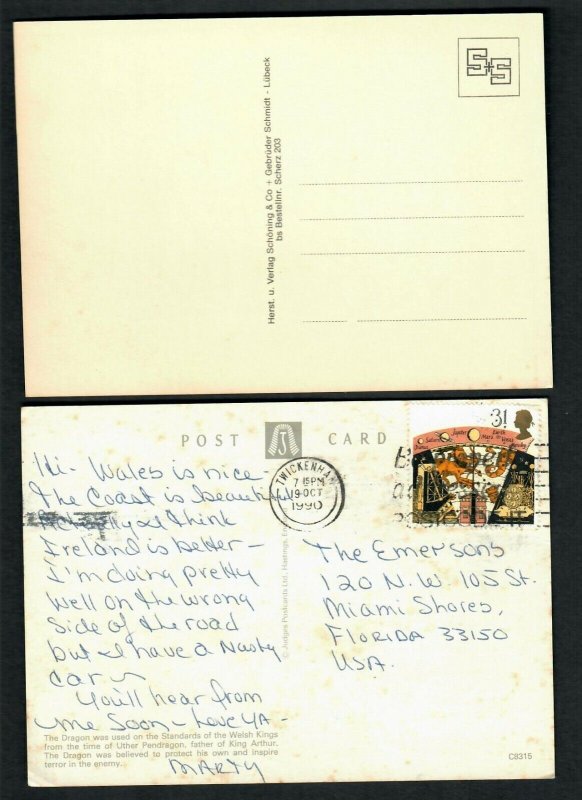 S+S
Herst. u. Verlag Schöning & Co + Gebrüder Schmidt - Lübeck
bs Bestellnr. Scherz 203
POST J CARD
31
TWICKENHAM
7 15PM
19 OCT
1990
Saturn Jupiter Mars Earth Venus
Hi - Wales is nice -
The Coast is beautiful
I think
Ireland is better -
I'm doing pretty
well on the wrong
side of the road
but I have a Nasty
car -
You'll hear from
me soon - Love YA -
MARTY
© Judges Postcards Ltd, Hastings,
The Emersons
120 N.W. 105 St.
Miami Shores,
FLORIDA 33150
USA.
The Dragon was used on the Standards of the Welsh Kings
from the time of Uther Pendragon, father of King Arthur.
The Dragon was believed to protect his own and inspire
terror in the enemy.
C8315